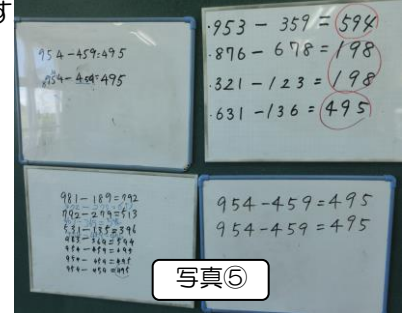 す
954-459=495
954-459=495
・953 - 359 = 594
・876 - 678 = 198
・321 - 123 = 198
・631 - 136 = 495
981-189=792
792-279=513
531-135=396
954-459=495
954-459=495
954-459=495
954-459=495
954-459=495
写真⑤